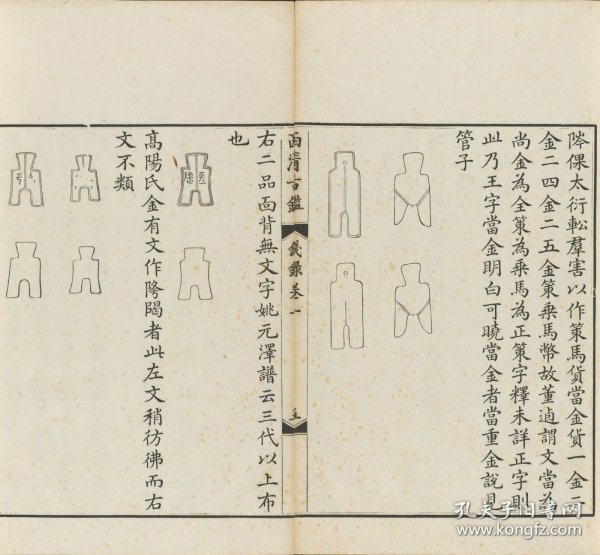 倮太衍
羣害以作策馬貨當金貨一金二
金二四金二五金策乗馬幣故董逌謂文當為
尚金為全策為乗馬為正策字釋未詳正字則
此乃王字當金明白可曉當金者當重金說見
管子
西清古鑑
錢錄卷一
五
右二品靣背無文字姚元澤譜云三代以上布
也
高陽氏金有文作
者此左文稍彷彿而右
文不類
孔夫子旧书网
www.kongfz.com